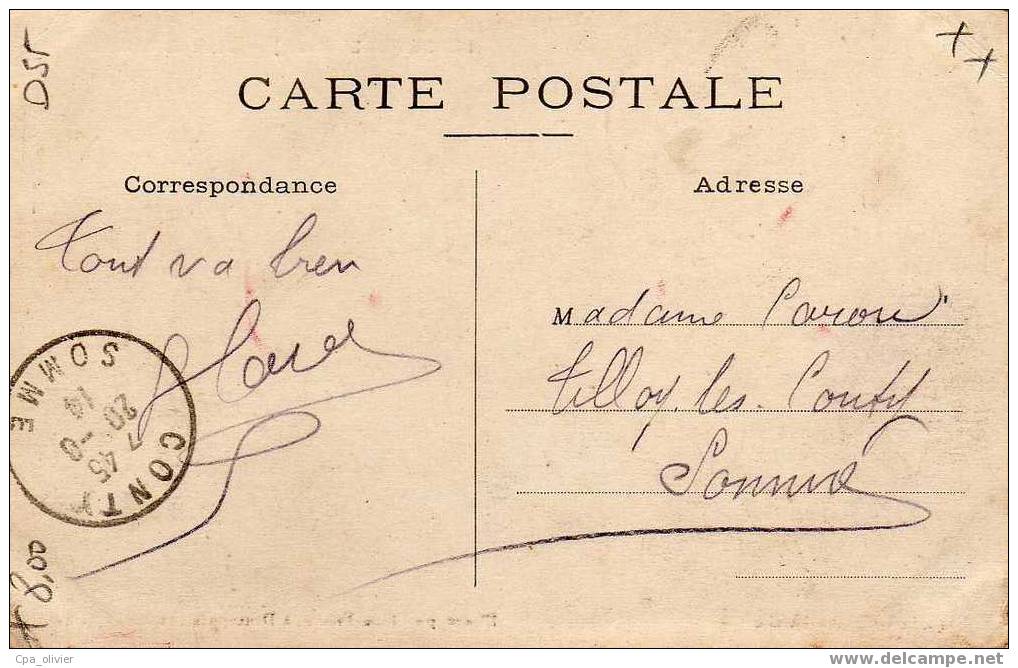 D5T
CARTE POSTALE
Correspondance
Adresse
Tout va bien
Madame Caron
Tilloy-les-Conty
Somme
SOMME
14
20-8
7 45
CONTY
8,00
Cpa_olivier
www.delcampe.net